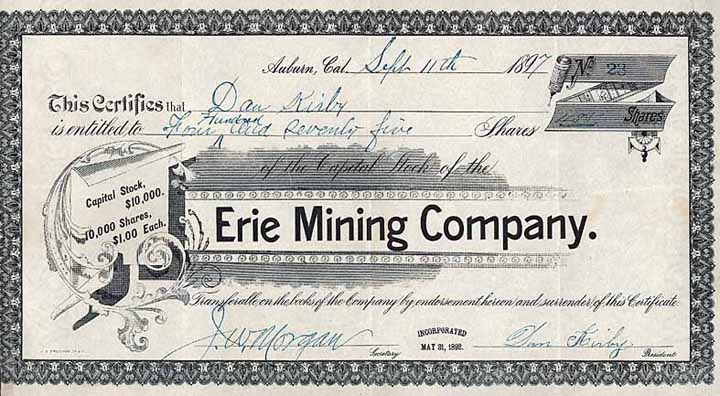 Auburn, Cal. Sept 11th 1897
No 23
This Certifies that Dan Kirby
Hundred
is entitled to Four and seventy five Shares
Shares
of the Capital Stock of the
Capital Stock,
$10,000.
10,000 Shares,
$1.00 Each.
Erie Mining Company.
Transferable on the books of the Company by endorsement hereon and surrender of this Certificate
J. W. Morgan
Secretary
INCORPORATED
MAY 31, 1892.
Dan Kirby
President